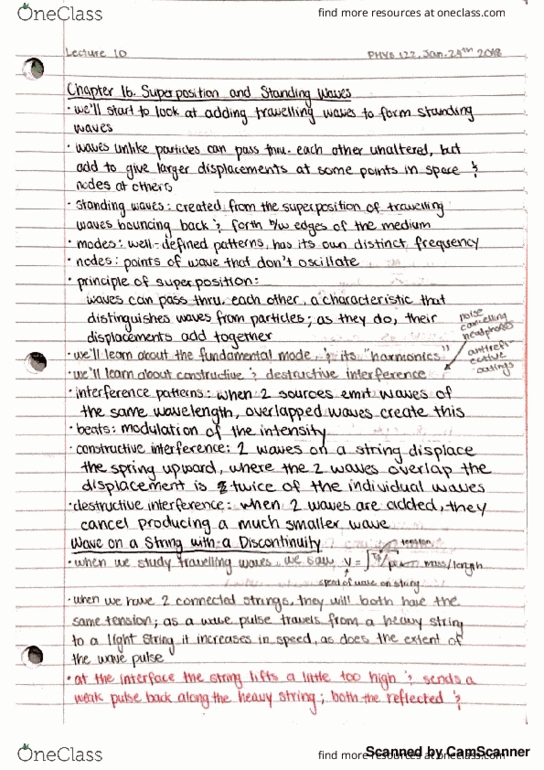 OneClass find more resources at oneclass.com
Lecture 10 PHYS 122, Jan. 24th 2018
Chapter 16. Superposition and Standing Waves
• we'll start to look at adding travelling waves to form standing
waves
• waves unlike particles can pass thru. each other unaltered, but
add to give larger displacements at some points in space &
nodes at others
• standing waves: created from the superposition of travelling
waves bouncing back & forth b/w edges of the medium
• modes: well-defined patterns, has its own distinct frequency
• nodes: points of wave that don't oscillate
• principle of superposition:
waves can pass thru. each other, a characteristic that
distinguishes waves from particles; as they do, their
displacements add together
noise
cancelling
headphones
• we'll learn about the fundamental mode & its "harmonics"
antirefl-
ective
coatings
• we'll learn about constructive & destructive interference
• interference patterns: when 2 sources emit waves of
the same wavelength, overlapped waves create this
• beats: modulation of the intensity
• constructive interference: 2 waves on a string displace
the spring upward, where the 2 waves overlap the
displacement is twice of the individual waves
• destructive interference: when 2 waves are added, they
cancel producing a much smaller wave
Wave on a String with a Discontinuity
tension
• when we study travelling waves, we saw v = √ mass/length
speed of wave on string
• when we have 2 connected strings, they will both have the
same tension; as a wave pulse travels from a heavy string
to a light string it increases in speed, as does the extent of
the wave pulse
• at the interface the string lifts a little too high & sends a
weak pulse back along the heavy string; both the reflected &
OneClass find more resources at oneclass.com
Scanned by CamScanner